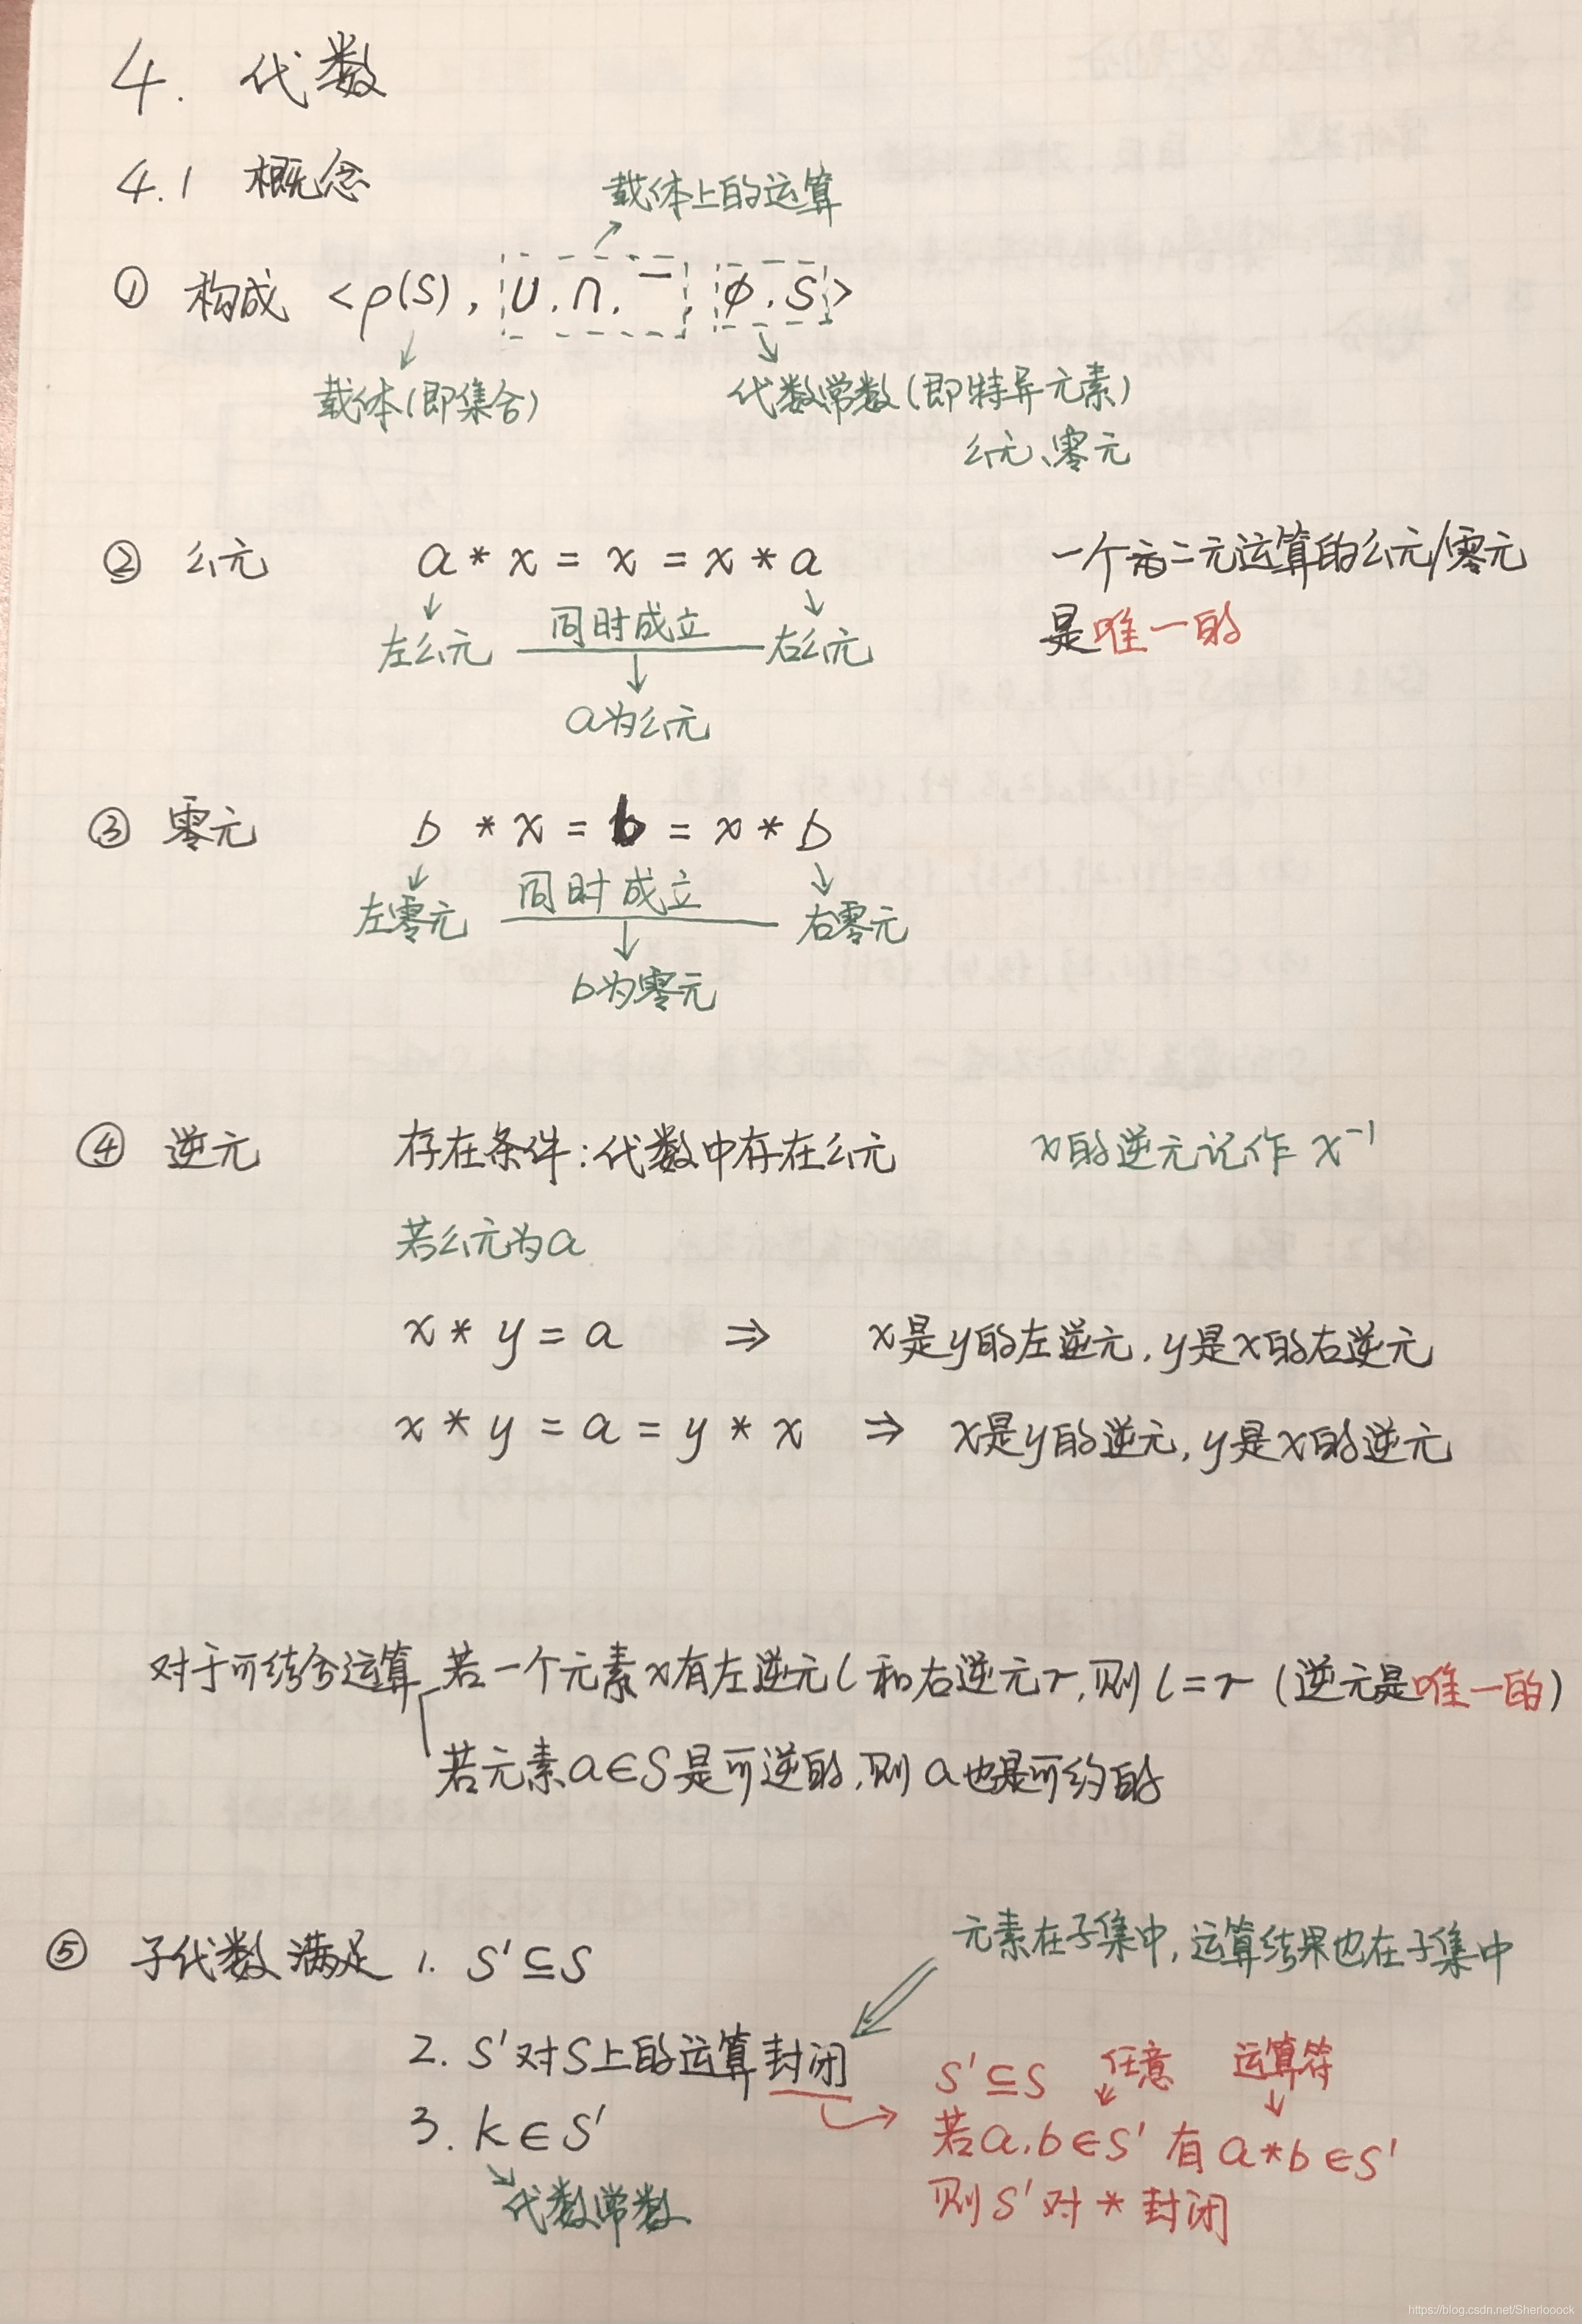 4. 代数
4.1 概念
载体上的运算
① 构成 <ρ(S), ∪, ∩, ¯, ϕ, S>
载体(即集合)
代数常数(即特异元素)
幺元、零元
② 幺元 a * x = x = x * a
一个二元运算的幺元/零元
左幺元 同时成立 右幺元
是唯一的
a为幺元
③ 零元 b * x = b = x * b
左零元 同时成立 右零元
b为零元
④ 逆元 存在条件:代数中存在幺元 x的逆元记作 x⁻¹
若幺元为a
x * y = a ⇒ x是y的左逆元,y是x的右逆元
x * y = a = y * x ⇒ x是y的逆元,y是x的逆元
对于可结合运算 若一个元素x有左逆元l和右逆元r,则l=r (逆元是唯一的)
若元素a∈S是可逆的,则a也是可约的
⑤ 子代数满足 1. S'⊆S
元素在子集中,运算结果也在子集中
2. S'对S上的运算封闭
S'⊆S 任意 运算符
3. k∈S'
若a,b∈S' 有a*b∈S'
代数常数
则S'对*封闭
https://blog.csdn.net/Sherlooock